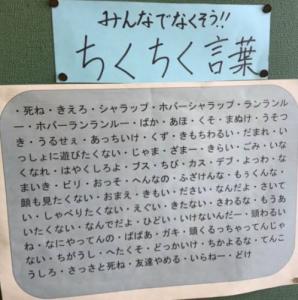 みんなでなくそう!!
ちくちく言葉
・死ね・きえろ・シャラップ・ホバーシャラップ・ランランル
ー・ホバーランランルー・ばか・あほ・くそ・まぬけ・うそつ
き・うるせぇ・あっちいけ・くず・きもちわるい・だまれ・い
っしょに遊びたくない・じゃま・ざまー・きらい・ごみ・いな
くなれ・はやくしろよ・ブス・ちび・カス・デブ・よっわ・な
まいき・ビリ・おっそ・へんなの・ふざけんな・もぅくんな・
顔も見たくない・おまえ・きもい・ださい・なんだよ・さいて
い・しゃべりたくない・えぐい・きたない・さわるな・もうあ
いたくない・なんでだよ・ひどい・いけないんだー・頭わるい
な・なにやってんの・ばばあ・ガキ・頭くるっちゃってんじゃ
ね・ちがうし・へたくそ・どっかいけ・ちかよるな・てんこ
うしろ・さっさと死ね・友達やめる・いらねー・どけ